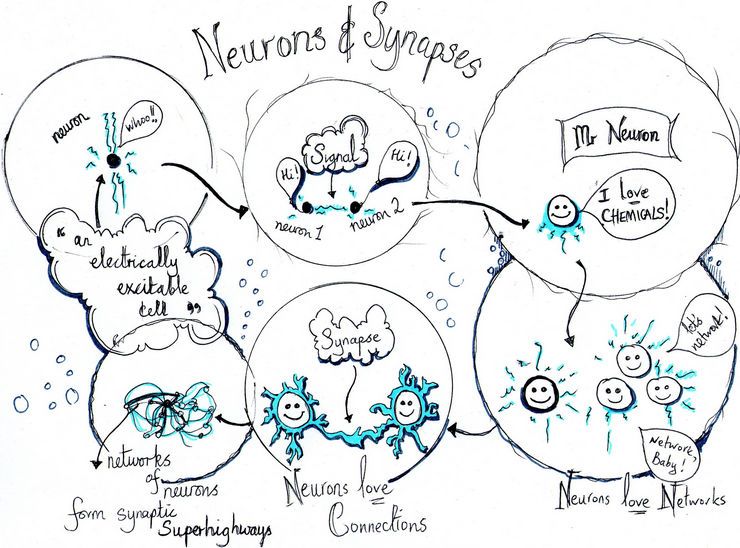 Neurons & Synapses
neuron
whoo!!
" an
electrically
excitable
cell "
Signal
Hi!
Hi!
neuron 1
neuron 2
Mr Neuron
I love
CHEMICALS!
let's
network!
Network,
Baby!
Neurons love Networks
Synapse
Neurons love
Connections
networks
of
neurons
form synaptic
Superhighways